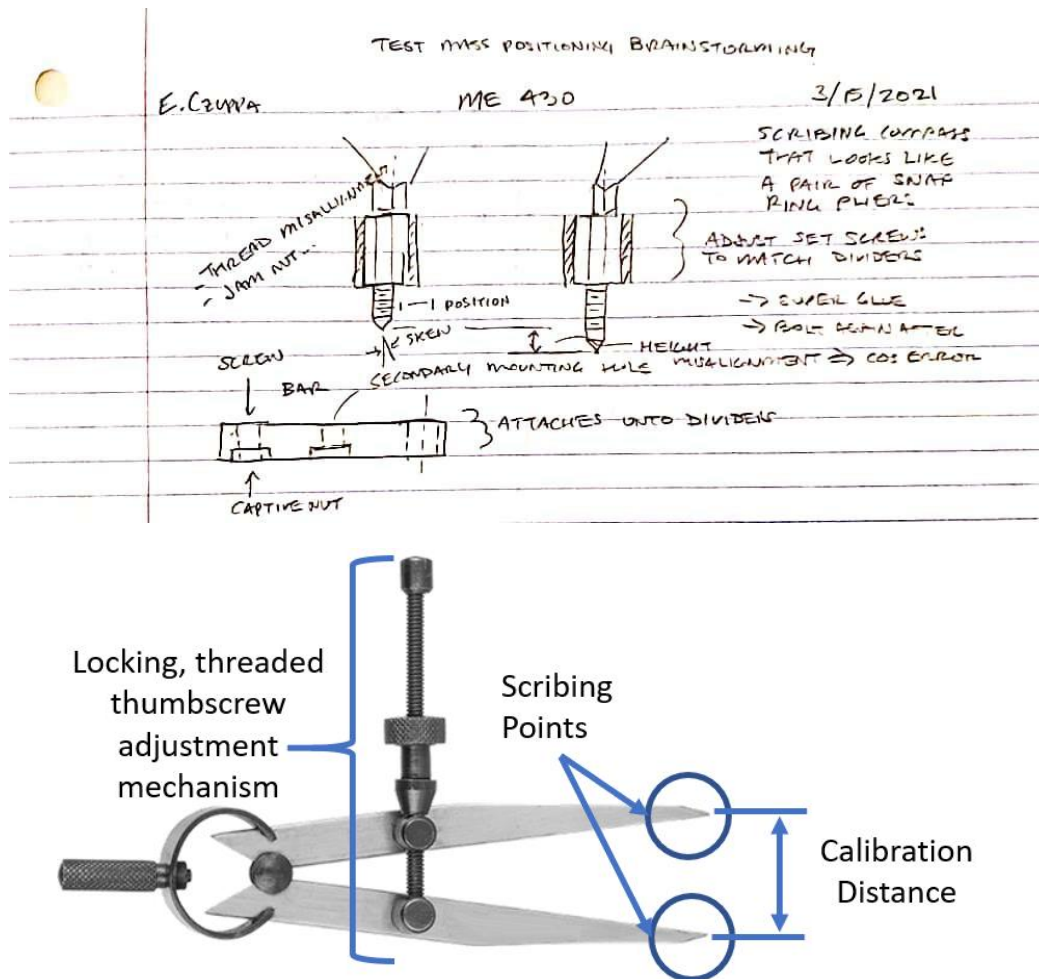 TEST MASS POSITIONING BRAINSTORMING
E. CZUPPA ME 430 3/15/2021
SCRIBING COMPASS
THAT LOOKS LIKE
A PAIR OF SNAP
RING PLIERS
- THREAD MISALIGNMENT
- JAM NUT...
ADJUST SET SCREWS
TO MATCH DIVIDERS
POSITION
→ SUPER GLUE
SKEW
→ BOLT AGAIN AFTER
HEIGHT
SCREW
SECONDARY MOUNTING HOLE MISALIGNMENT ⇒ COS ERROR
BAR
ATTACHES ONTO DIVIDERS
CAPTIVE NUT
Locking, threaded
thumbscrew
adjustment
mechanism
Scribing
Points
Calibration
Distance